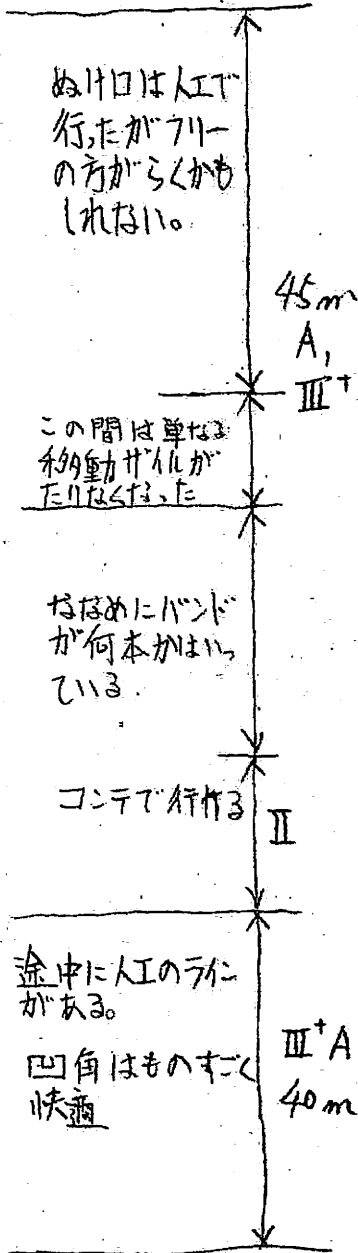 ぬけ口は人工で
行ったがフリー
の方がらくかも
しれない。
45m
A1
III+
この間は単なる
移動ザイルが
たりなくなった
ななめにバンド
が何本かはいっ
ている.
コンテで行ける
II
途中に人工のライン
がある。
凹角はものすごく
快適
III+A
40m